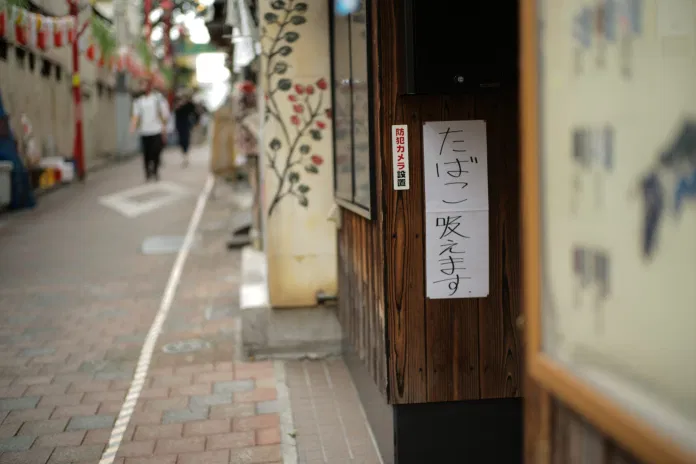 防犯カメラ設置
たばこ
吸えます.